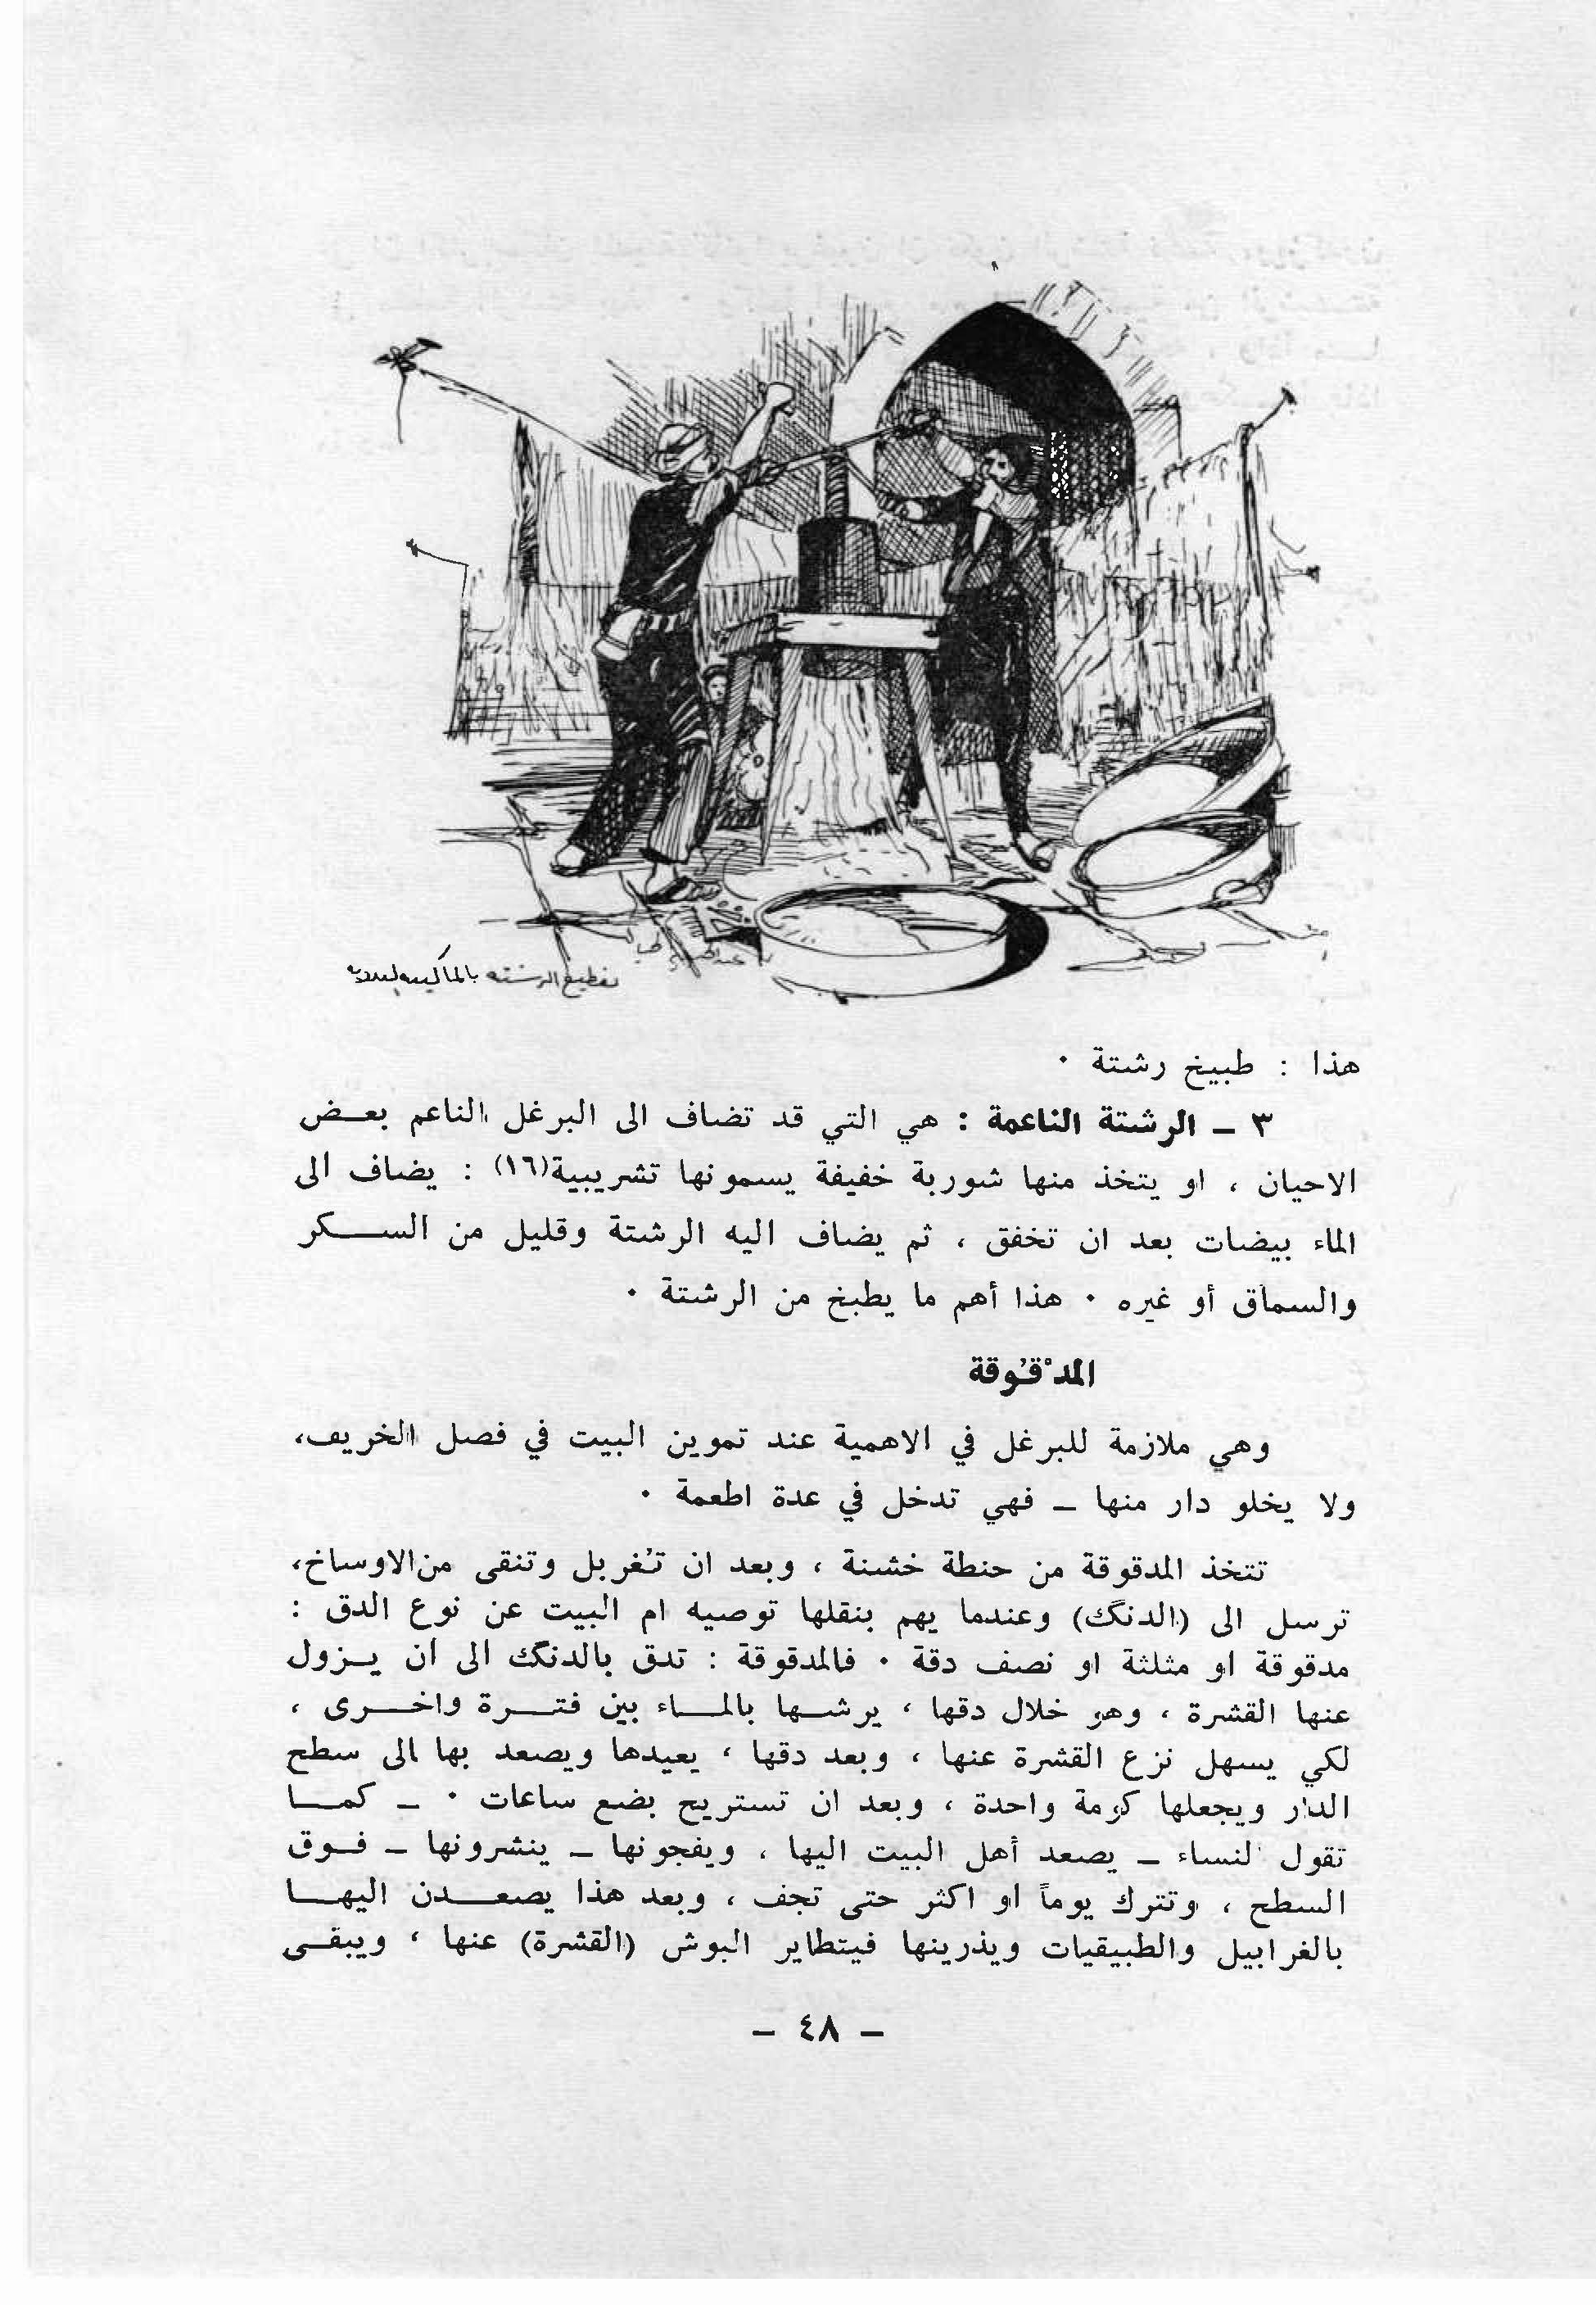 تقطيع الرشته بالماكينه اليدوية
هذا : طبيخ رشتة ٠
٣ ــ الرشتة الناعمة : هي التي قد تضاف الى البرغل الناعم بعـــض
الاحيان ، او يتخذ منها شوربة خفيفة يسمونها تشريبية(١٦) : يضاف الى
الماء بيضات بعد ان تخفق ، ثم يضاف اليه الرشتة وقليل من الســـكر
والسماق أو غيره ٠ هذا أهم ما يطبخ من الرشتة ٠
المدْقُوقة
وهي ملازمة للبرغل في الاهمية عند تموين البيت في فصل الخريف،
ولا يخلو دار منها ــ فهي تدخل في عدة اطعمة ٠
تتخذ المدقوقة من حنطة خشنة ، وبعد ان تُغربل وتنقى من الاوساخ،
ترسل الى (الدنگ) وعندما يهم بنقلها توصيه ام البيت عن نوع الدق :
مدقوقة او مثلثة او نصف دقة ٠ فالمدقوقة : تدق بالدنگ الى ان يـــزول
عنها القشرة ، وهو خلال دقها ، يرشـــها بالمـــاء بين فتـــرة واخـــرى ،
لكي يسهل نزع القشرة عنها ، وبعد دقها ، يعيدها ويصعد بها الى سطح
الدار ويجعلها كومة واحدة ، وبعد ان تستريح بضع ساعات ٠ ــ كمـــا
تقول النساء ــ يصعد أهل البيت اليها ، ويفجونها ــ ينشرونها ــ فـــوق
السطح ، وتترك يوماً او اكثر حتى تجف ، وبعد هذا يصعـــدن اليهـــا
بالغرابيل والطبيقيات ويذرينها فيتطاير البوش (القشرة) عنها ، ويبقـــى
ــ ٤٨ ــ